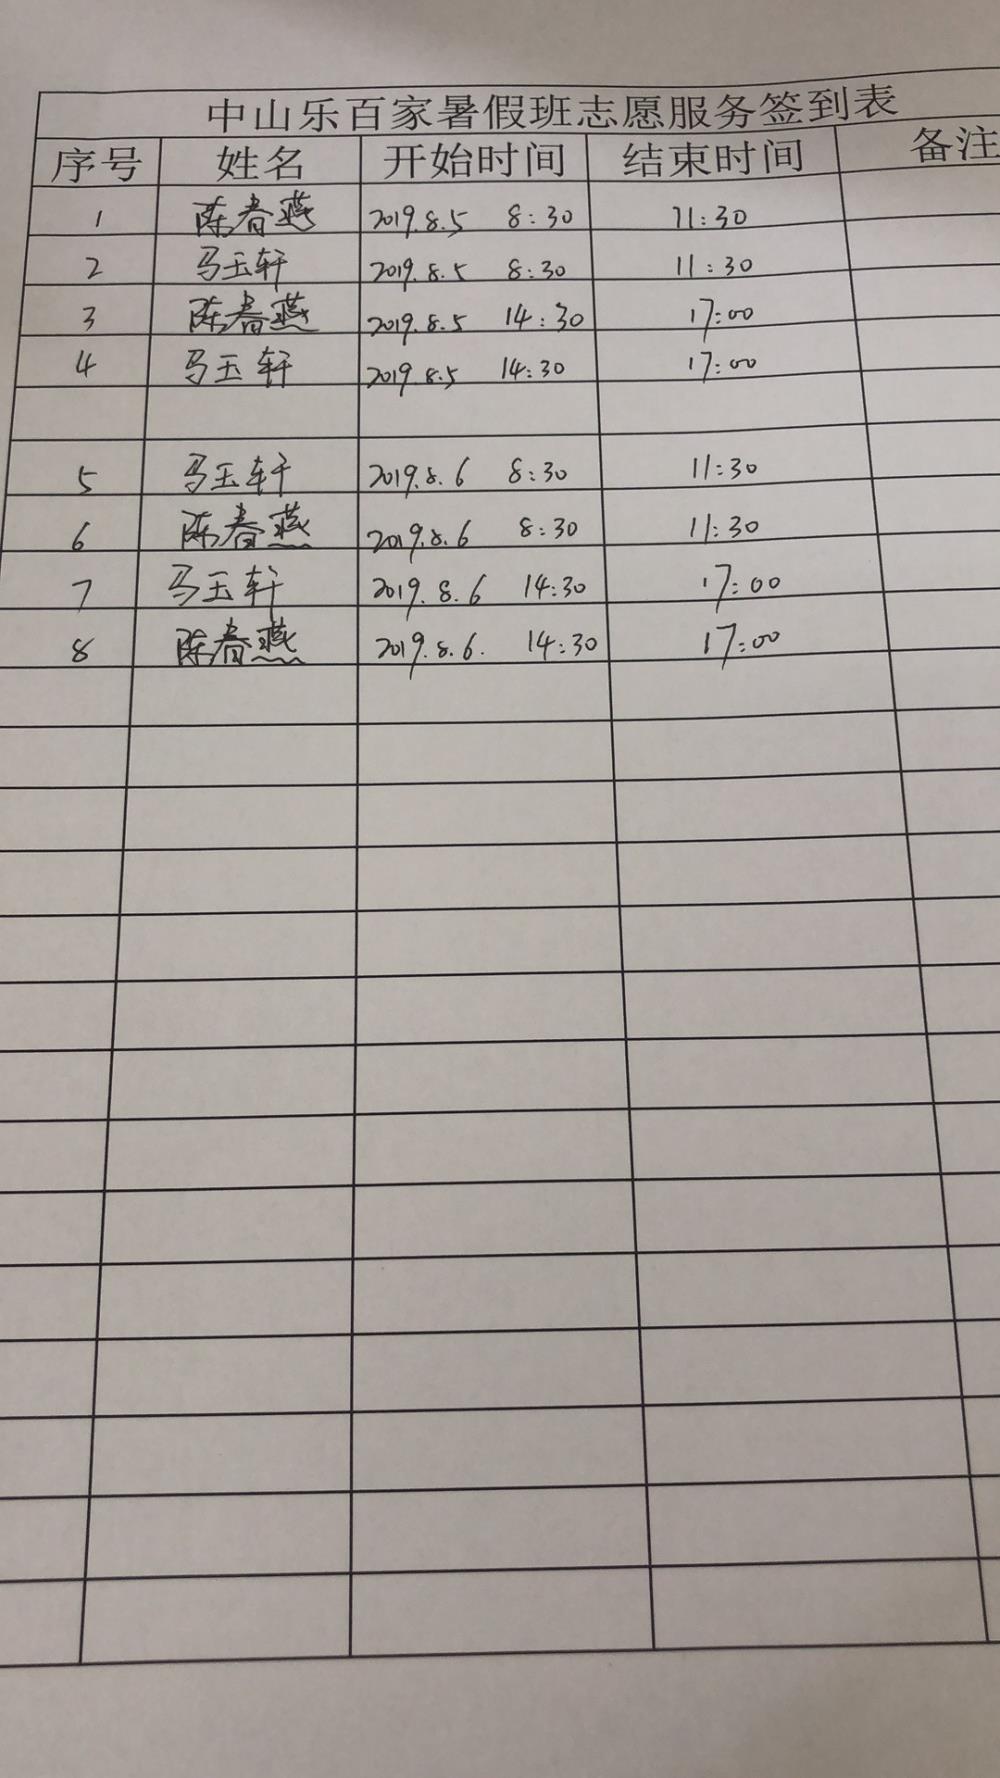 中山乐百家暑假班志愿服务签到表
序号 姓名 开始时间 结束时间 备注
1 陈春燕 2019.8.5 8:30 11:30
2 马玉轩 2019.8.5 8:30 11:30
3 陈春燕 2019.8.5 14:30 17:00
4 马玉轩 2019.8.5 14:30 17:00
5 马玉轩 2019.8.6 8:30 11:30
6 陈春燕 2019.8.6 8:30 11:30
7 马玉轩 2019.8.6 14:30 17:00
8 陈春燕 2019.8.6. 14:30 17:00